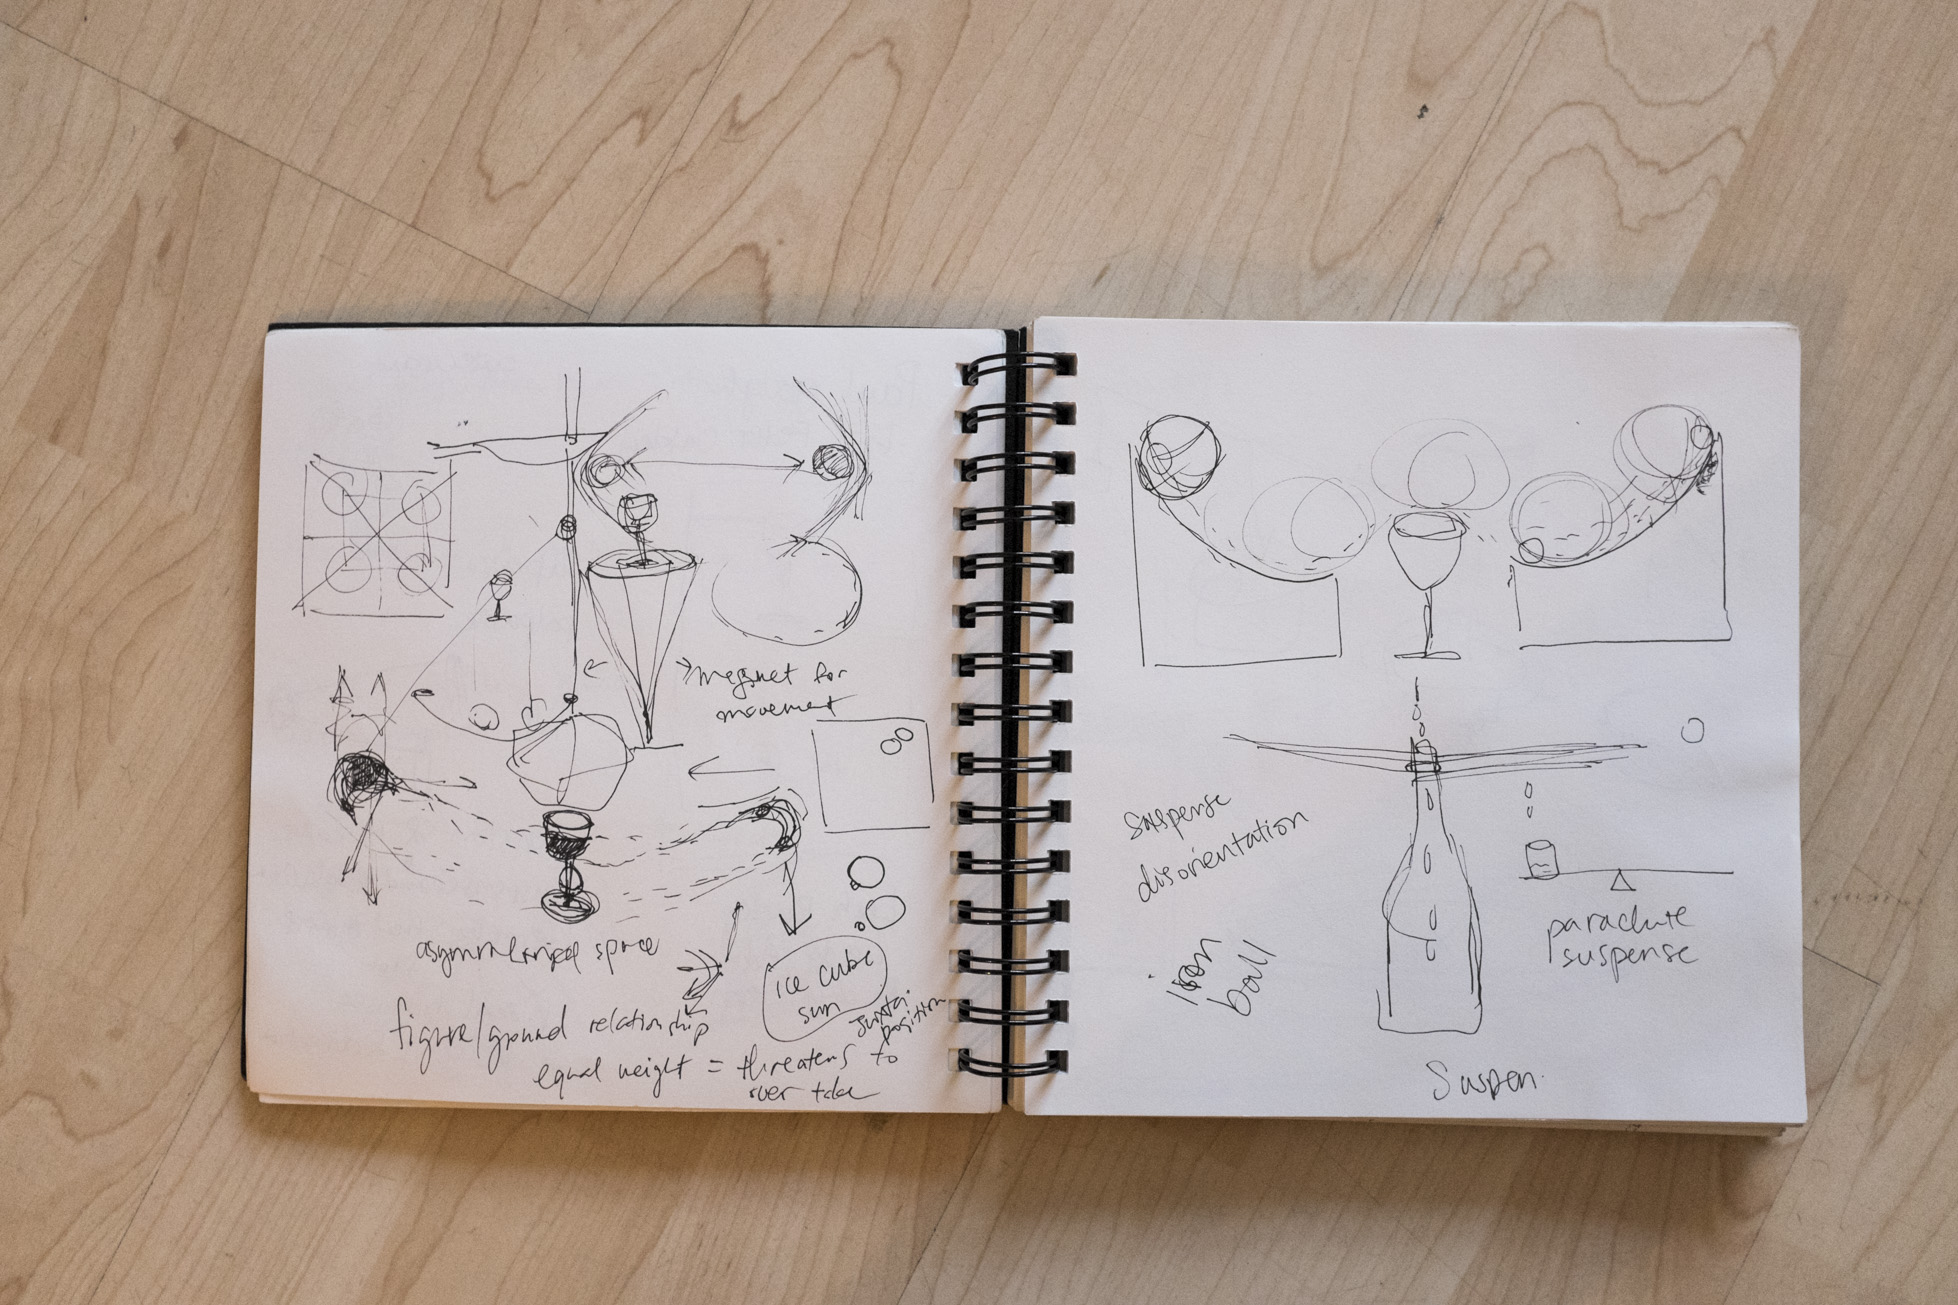 magnet for
movement
space
ice cube
sun
juxta-
position
figure/ground relationship
equal weight = threatens to
over take
suspense
disorientation
iron
ball
parachute
suspense
Suspen.